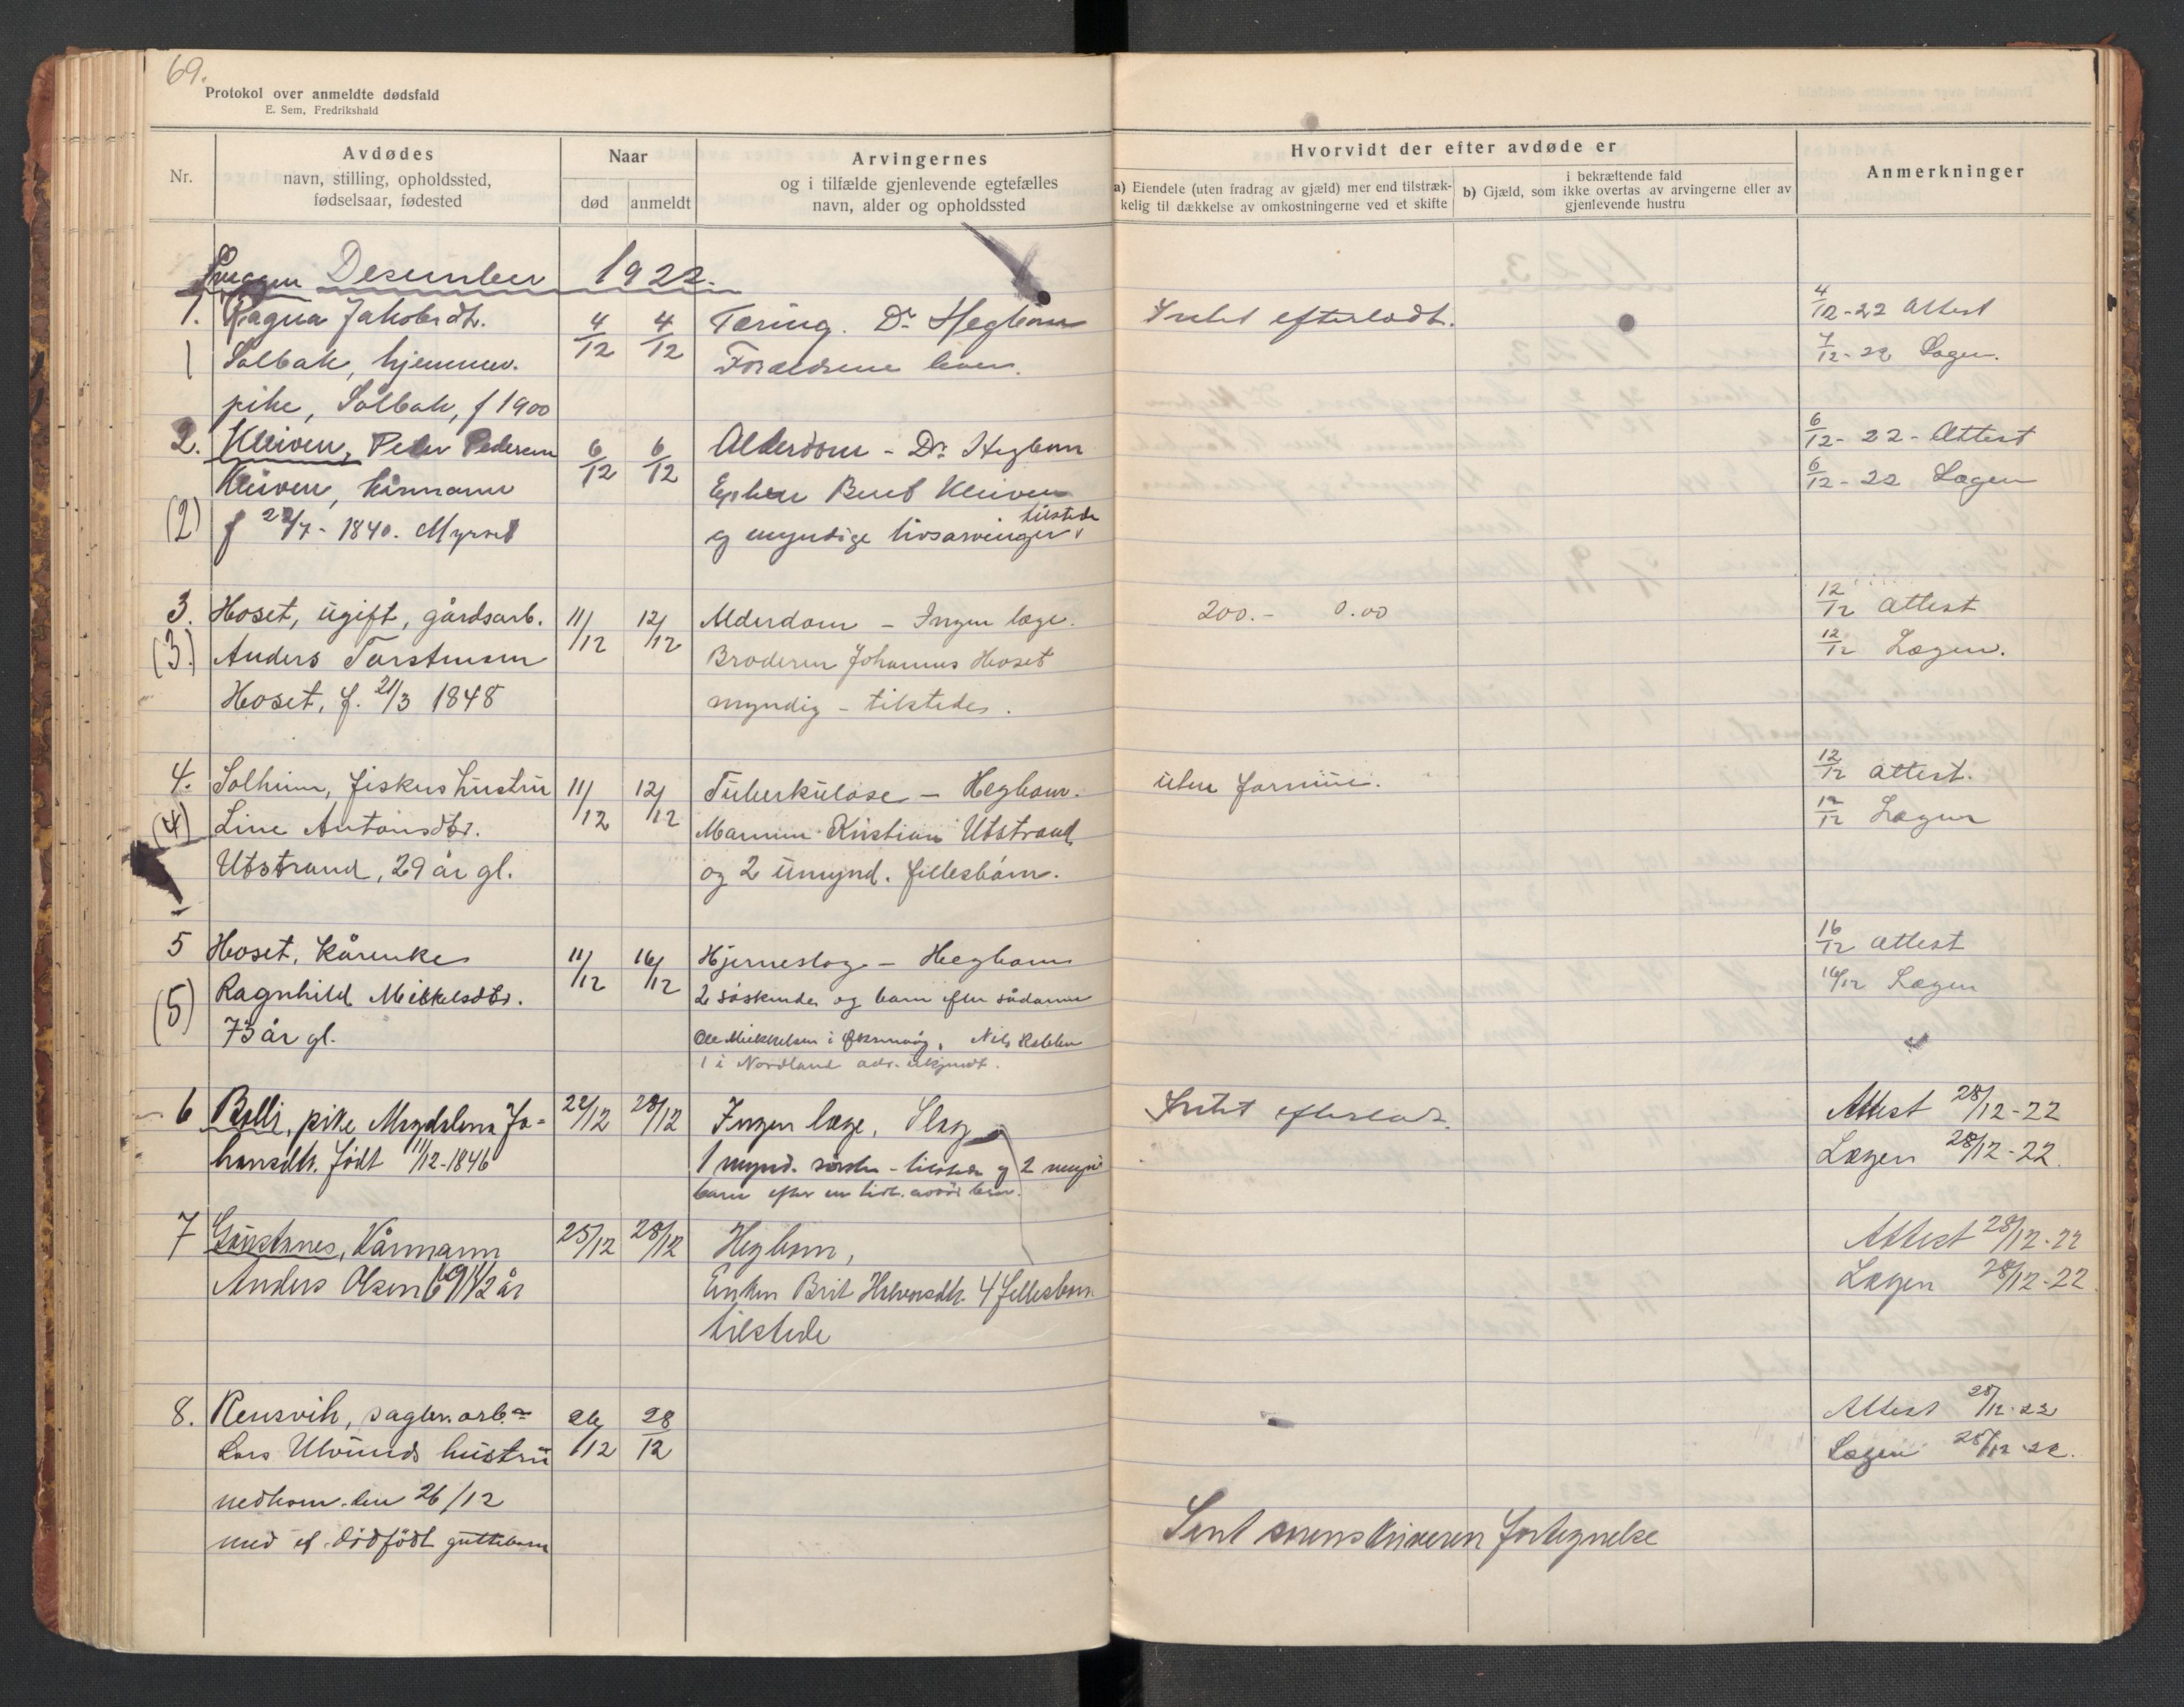 69.
Protokol over anmeldte dødsfald
E. Sem, Fredrikshald
Nr.
Avdødes
navn, stilling, opholdssted,
fødselsaar, fødested
Naar
død
anmeldt
Arvingernes
og i tilfælde gjenlevende egtefælles
navn, alder og opholdssted
Hvorvidt der efter avdøde er
a) Eiendele (uten fradrag av gjæld) mer end tilstræk-
kelig til dækkelse av omkostningerne ved et skifte
i bekræftende fald
b) Gjæld, som ikke overtas av arvingerne eller av
gjenlevende hustru
Anmerkninger
Desember 1922.
1. Ragna Jakobsdtr. 4/12 4/12 Tæring. Dr. Hegbom Intet efterladt. 4/12-22 Attest
1 Solbak, hjemmev. Forældrene lever. 7/12-22 Lægen.
pike, Solbak, f 1900
2. Kleiven, Peder Pedersen 6/12 6/12 Alderdom - Dr. Hegbom 6/12-22- Attest
Kleiven, kårmann Enken Berit Kleiven 6/12-22 Lægen
(2) f 22/7-1840. Myrset og myndige livsarvinger tilstede
3. Hoset, ugift, gårdsarb. 11/12 12/12 Alderdom - Ingen læge. 200.- 0.00 12/12 attest
(3.) Anders Torstensen Broderen Johannes Hoset 12/12 Lægen.
Hoset, f. 21/3 1848 myndig - tilstede.
4. Solheim, fiskers hustru 11/12 12/12 Tuberkulose - Hegbom. uten formue. 12/12 attest.
(4) Line Antonsdtr. Mannen Kristian Utstrand 12/12 Lægen
Utstrand, 29 år gl. og 2 umynd. fellesbarn.
5 Hoset, kårenke 11/12 16/12 Hjerneslag - Hegbom 16/12 attest
(5) Ragnhild Mikkelsdtr. 2 søskende og barn efter sådanne 16/12 Lægen
73 år gl. Ole Mikkelsen i Nils
1 i Nordland adr. ukjendt.
6 Belli, pike Magdalena Jo- 22/12 28/12 Ingen læge, Slag Intet efterladt. Attest 28/12-22
hansdtr. født 11/12-1846 1 mynd. søster - tilstede og 2 mynd Lægen 28/12-22.
barn efter en tidl. avdød bror.
7 Gaustanes, Kårmann 25/12 28/12 Hegbom, Attest 28/12-22
Anders Olsen 69 1/2 år Enken Brit Halvorsdtr. 4 fellesbarn Lægen 28/12-22
tilstede
8. Rensvik, sagbr. arb. 26/12 28/12 Attest 28/12-22
Lars Ulvunds hustru Lægen 28/12-22.
nedkom den 26/12
med et dødfødt guttebarn
Sent sorenskriveren fortegnelse